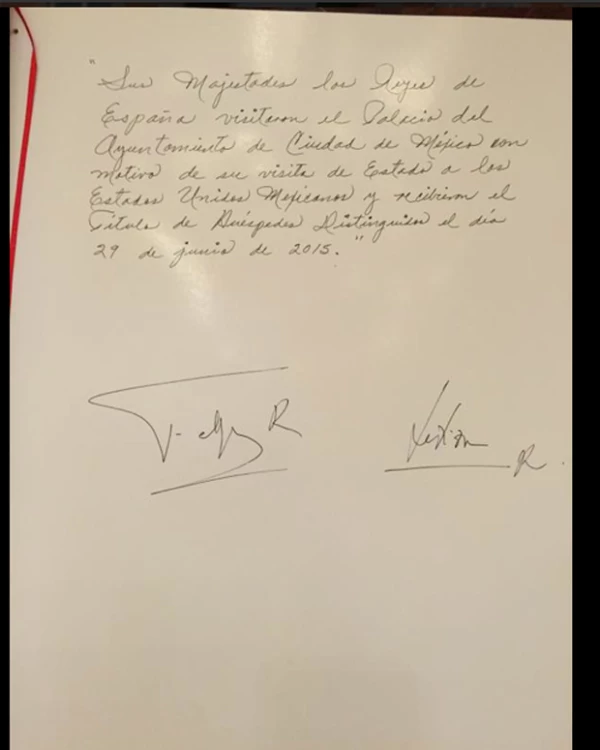 "Sus Majestades los Reyes de
España visitaron el Palacio del
Ayuntamiento de Ciudad de México con
motivo de su visita de Estado a los
Estados Unidos Mexicanos y recibieron el
Título de Huéspedes Distinguidos el día
29 de junio de 2015."
Felipe R
Letizia R.